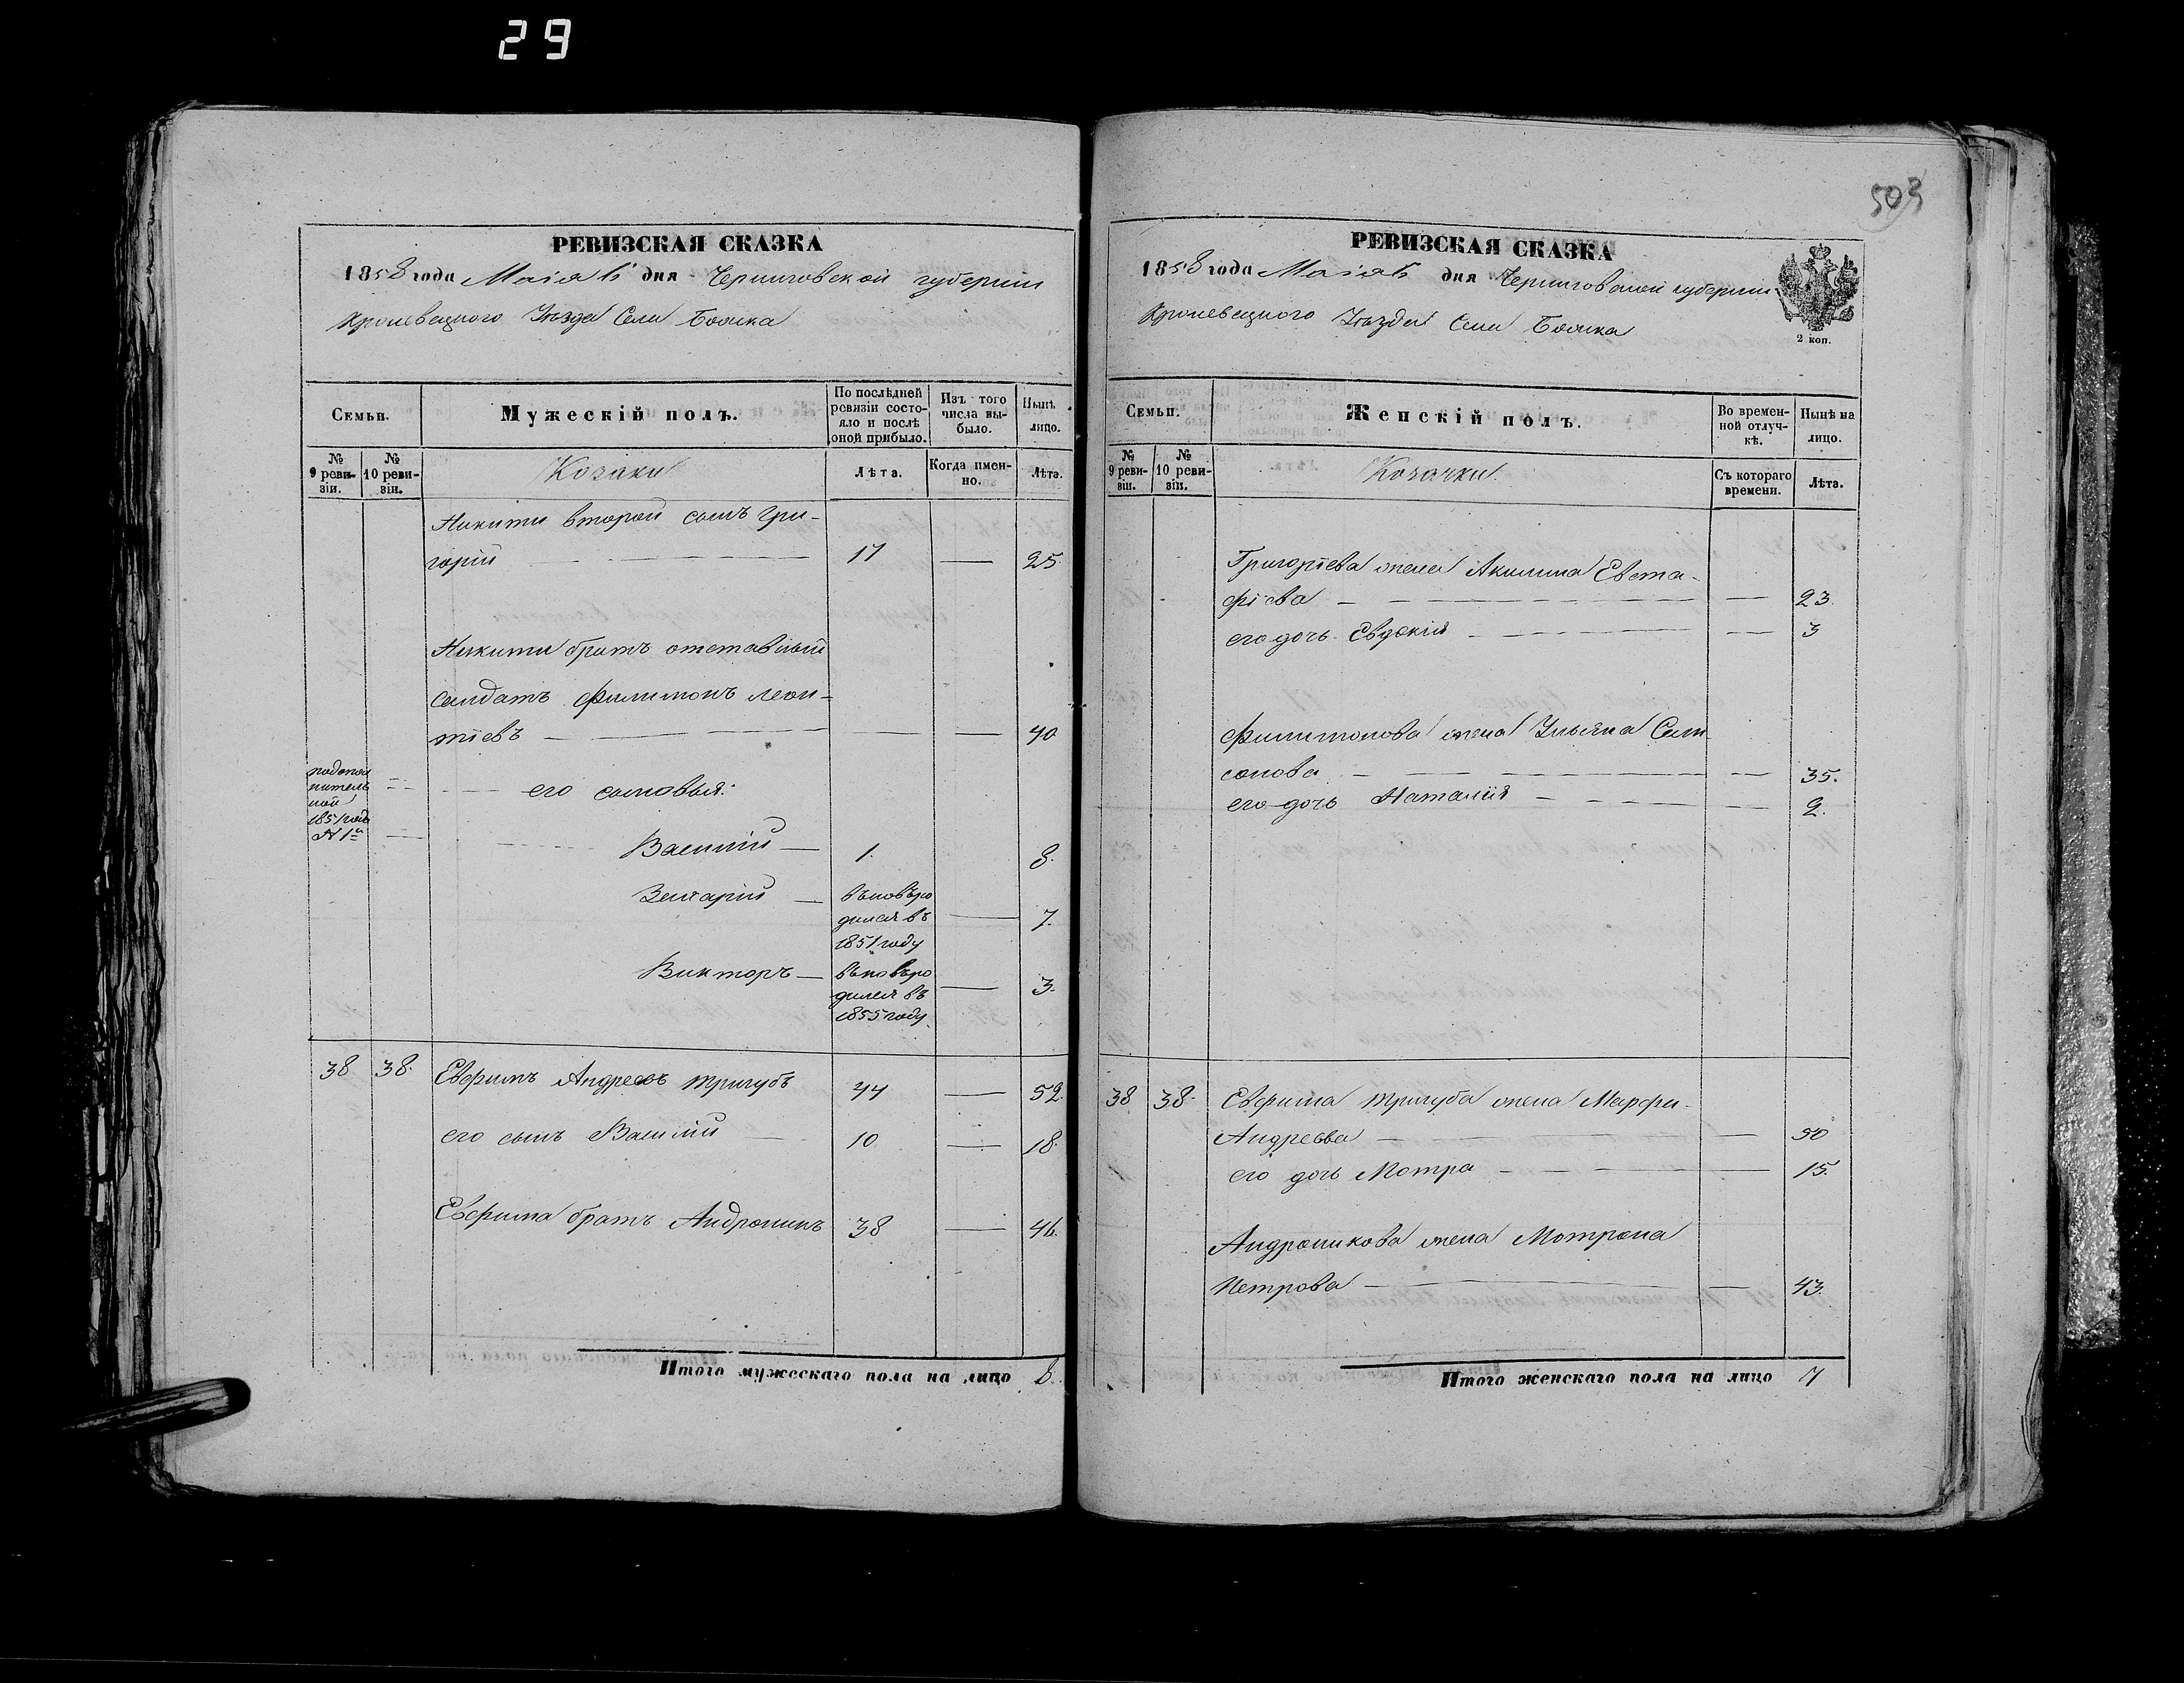 29
РЕВИЗСКАЯ СКАЗКА
1858 года Маія 6 дня Черниговской губерніи
Кролевецкого Уѣзда Села
Семьи.
Мужескій полъ.
По послѣдней ревизіи состояло и послѣ оной прибыло.
Изъ того числа выбыло.
Нынѣ лицо.
№ 9 ревизіи.
№ 10 ревизіи.
Козаки
Лѣта.
Когда именно.
Лѣта.
Никиты второй сынъ Гри-
горій 17 — 25
Никиты братъ отставный
солдатъ Филимонъ Леон-
тіевъ — — 40
его сыновья:
1851 года
№ 1й
Василій — 1. 8.
Захарій — вновь ро
дился въ — 7.
1851 году
Викторъ — вновь ро
дился въ — 3.
1855 году
38 38. Евфимъ Андреевъ Тригубъ 44 — 52.
его сынъ Василій — 10 — 18.
Евфима братъ Андроникъ 38 — 46.
Итого мужескаго пола на лицо 8.
503
РЕВИЗСКАЯ СКАЗКА
1858 года Маія 6 дня Черниговской губерніи
Кролевецкого Уѣзда Села
2 коп.
Семьи.
Женскій полъ.
Во временной отлучкѣ.
Нынѣ на лицо.
№ 9 ревизіи.
№ 10 ревизіи.
Козачки.
Съ котораго времени.
Лѣта.
Григоріева жена Акилина Евста-
фіева — — 23.
его дочь Евдокія — — 3
Филимонова жена Ульяна Сам
сонова — — 35.
его дочь Наталія — — 2.
38 38. Евфима Тригуба жена Марфа
Андреева — — 50
его дочь Мотра — — 15.
Андроникова жена Мотрона
Петрова — — 43.
Итого женскаго пола на лицо 7